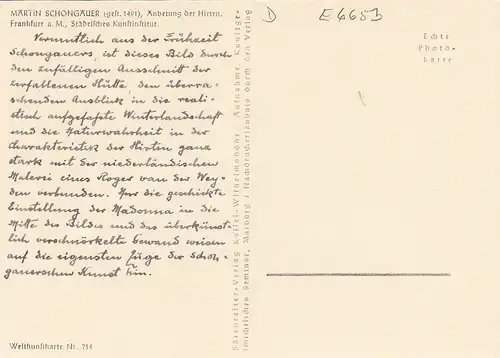 MARTIN SCHONGAUER (gest. 1491), Anbetung der Hirten.
Frankfurt a. M., Städelsches Kunstinstitut.
Vermutlich aus der Frühzeit
Schongauers, ist dieses Bild durch
den zufälligen Ausschnitt der
zerfallenen Hütte, den überra-
schenden Ausblick in die reali-
stisch aufgefaßte Winterlandschaft
und die Naturwahrheit in der
Charakteristik der Hirten ganz
stark mit der niederländischen
Malerei eines Roger van der Wey-
den verbunden. Nur die geschickte
Einstellung der Madonna in die
Mitte des Bildes und das überkünst-
lich verschnörkelte Gewand weisen
auf die eigensten Züge der Schon-
gauerschen Kunst hin.
Weltkunstkarte Nr. 714
Bärenreiter-Verlag Kassel-Wilhelmshöhe. Aufnahme: Kunstge-
schichtliches Seminar, Marburg / Nachdruckerlaubnis durch den Verlag
D
E 6653
Echte
Photo-
karte